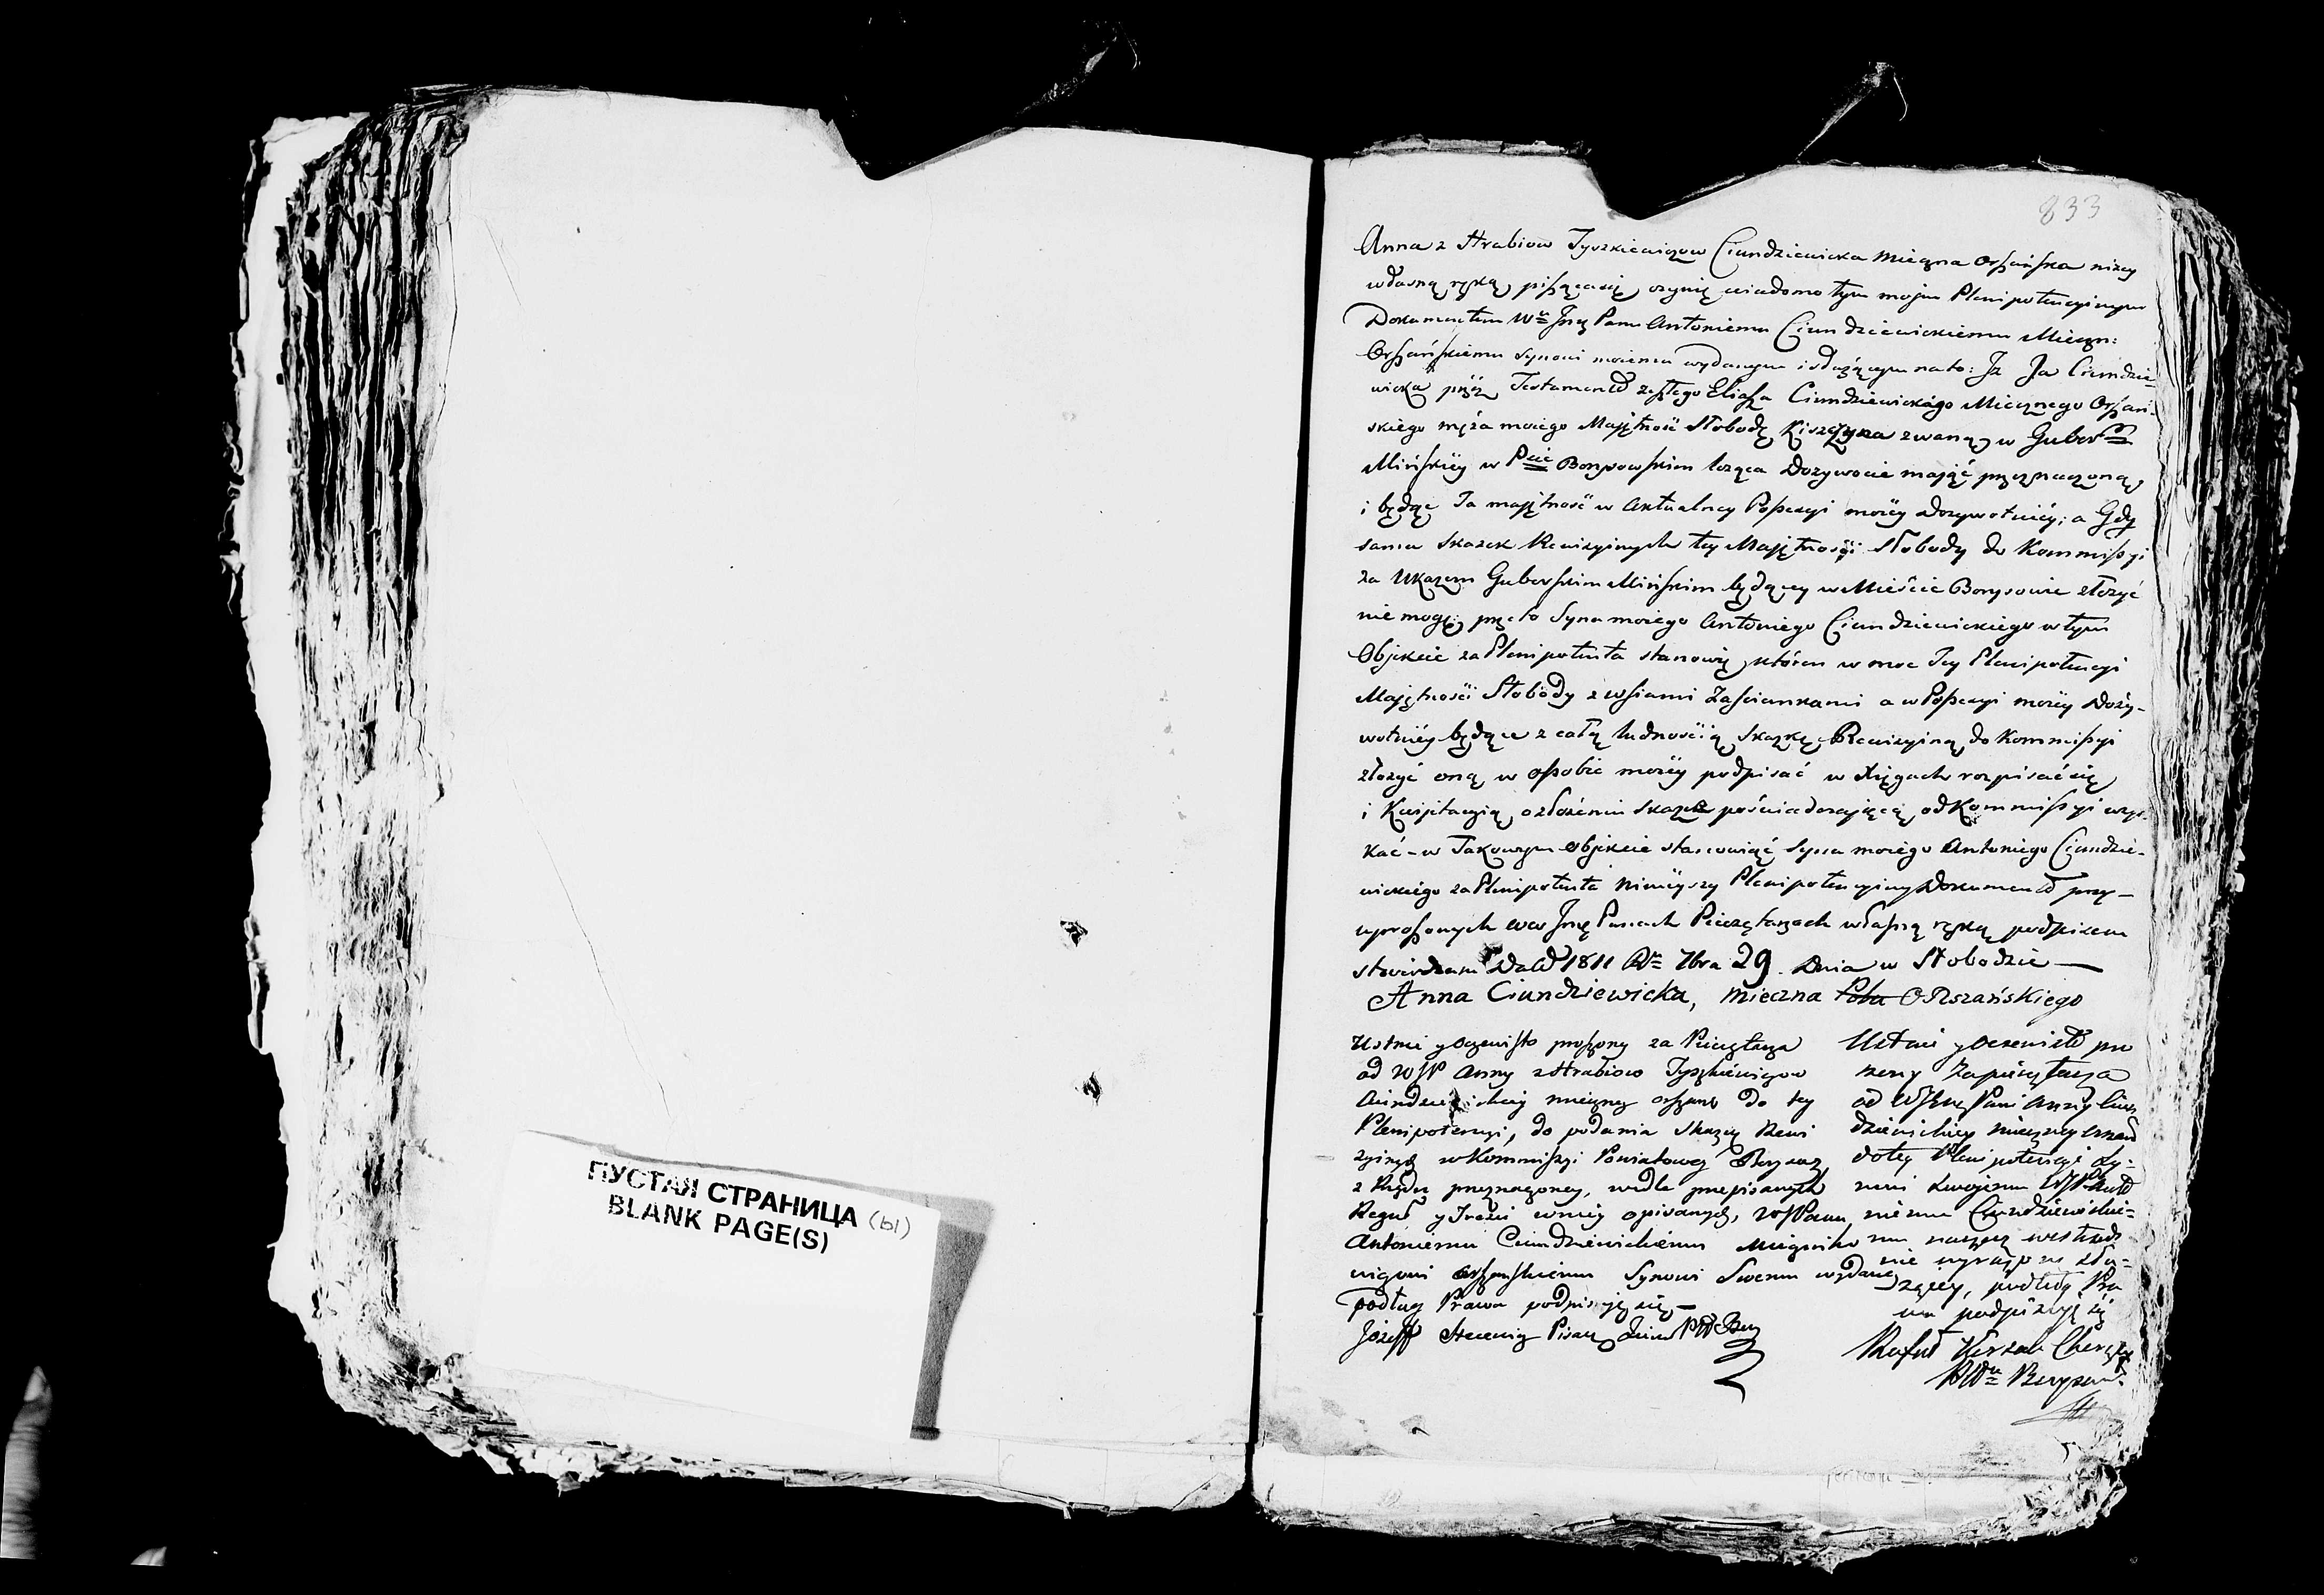 ПУСТАЯ СТРАНИЦА (ы)
BLANK PAGE(S)
833
Anna z Hrabiow Tyszkiewiczow Ciundziewicka Mieczna Orszańska niżey
własną ręką piszącasię, czynię wiadomo tym moim Plenipotencyinym
Dokumentem Wu Jmę Panu Antoniemu Ciundziewickiemu Mieczn:
Orszańskiemu Synowi moiemu wydanym i służącym na to: Jż Ja Ciundzie-
wicka przez Testament zeszłego Eliasza Ciundziewickiego Miecznego Orszań-
skiego męża moiego Majętność Słobodę Kiszczyna zwaną, w Guber
Mińskiey w Pcie Borysowskim leżąca Dożywocie mając przeznaczoną,
i będąc Ta majętność w Aktualney Possesyi moiey Dożywotniey; a Gdy
sama Skazek Rewizyinych tey Majętności Słobody do Kommissyi
za Ukazem Guberskim Mińskim będącey w Mieście Borysowie złożyć
nie mogę; prze to Syna moiego Antoniego Ciundziewickiego w tym
Objekcie za Plenipotenta stanowię, którен w moc Tey Plenipotencyi
Majętności Słobody z wsiami Zasciankami a w Possesyi moiey Doży-
wotniey będące z całą ludnością Skazkę Rewizyiną do Kommissyi
złożyć oną, w osobie moiey podpisać w Xięgach rozpisać się,
i Kwitacyią o złożeniu Skazek poświadczającą od Kommissyi uzys-
kać – w Takowym Objekcie stanowiąc Syna moiego Antoniego Ciundzie-
wickiego za Plenipotenta Ninieyszy Plenipotencyiny Dokument przy –
uproszonych ww Jmę Panach Pieczętarzach własną ręką podpisem
stwierdzam Dat 1811 Ru 7bra 29. Dnia w Słobodzie —
Anna Ciundziewicka, Mieczna Orszańskiego
Ustnie y Oczewisto proszony za Pieczętarza
od WJP Anny z Hrabiow Tyszkiewiczow
Ciundziewickiey mieczney orszans do tey
Plenipotencyi, do podania Skazek Rewi
zyinych w Kommissyi Powiatowey Borysow
z Rządu przeznaczoney, wedle przepisanych
Reguł y Treści w niey opisanych, WJPanu
Antoniemu Ciundziewickiemu Mieczniko
wiczowi Orszanskiemu Synowi Swemu wydaney
podług Prawa podpisuję się –
Józeff Pisarz Ziem Ptt Bory
Ustnie y Oczewisto pro
szony Za pieczętarza
od WJmę Pani Anny Ciun
dziewickiey Mieczney Orszań
do tey Plenipotencyi Sy:
nowi swojemu WJP Anto
niemu Ciundziewickie=
mu na rzecz wewtrzod
nie wyrażone słu=
żącey, podług Pra
wa podpisuję się
Rafał
Pttu Borysow: